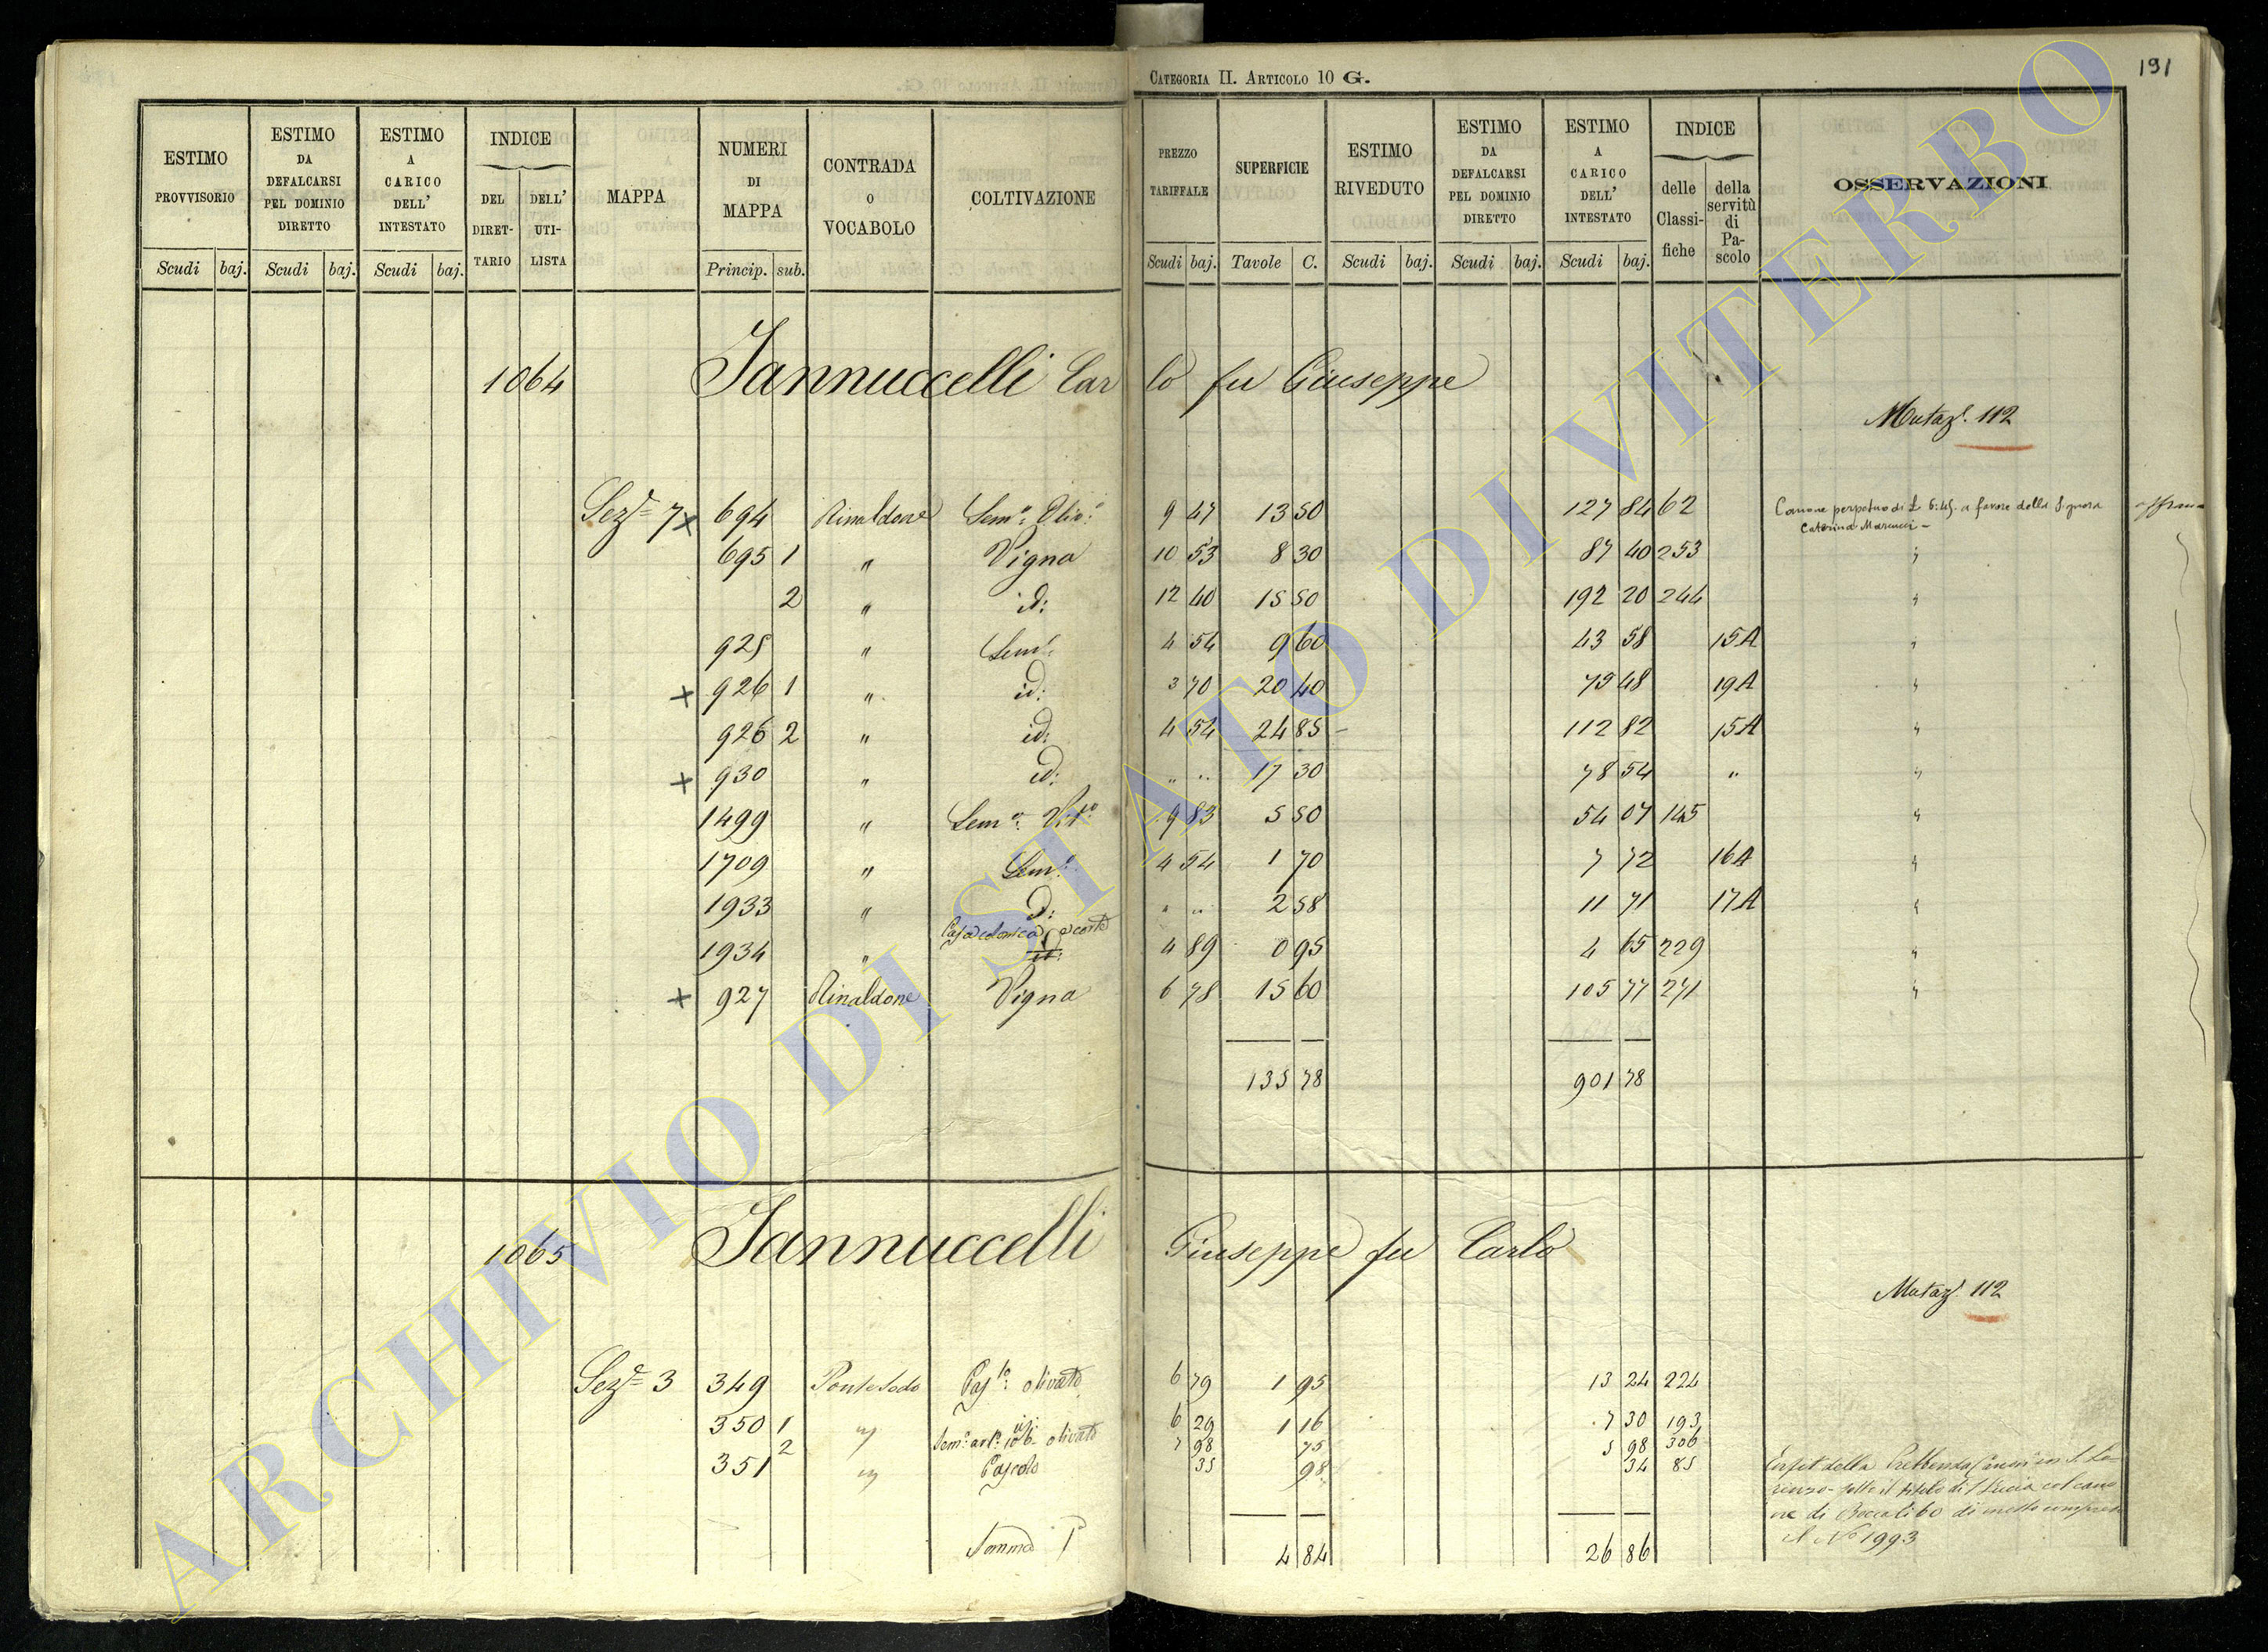 CATEGORIA II. ARTICOLO 10 G.
191
ESTIMO PROVVISORIO Scudi baj.
ESTIMO DA DEFALCARSI PEL DOMINIO DIRETTO Scudi baj.
ESTIMO A CARICO DELL' INTESTATO Scudi baj.
INDICE DEL DIRETTARIO DELL' UTILISTA
MAPPA
NUMERI DI MAPPA Princip. sub.
CONTRADA O VOCABOLO
COLTIVAZIONE
PREZZO TARIFFALE Scudi baj.
SUPERFICIE Tavole C.
ESTIMO RIVEDUTO Scudi baj.
ESTIMO DA DEFALCARSI PEL DOMINIO DIRETTO Scudi baj.
ESTIMO A CARICO DELL' INTESTATO Scudi baj.
INDICE delle Classifiche della servitù di Pascolo
OSSERVAZIONI
1064 Iannuccelli Carlo fu Giuseppe
Mutaz.e 112
Sez.e 7 x 694 Rinaldone Sem.o Oliv.o 9 47 13 50 127 84 62 Canone perpetuo di £ 6:45. a favore della Signora
Caterina Marcucci -
695 1 " Vigna 10 53 8 30 87 40 253 "
2 " id: 12 40 15 50 192 20 244 "
925 " Sem.o 4 54 9 60 43 58 15A "
x 926 1 " id: 3 70 20 40 75 48 19A "
926 2 " id: 4 54 24 85 - 112 82 15A "
x 930 " id: " " 17 30 78 54 " "
1499 " Sem.o Vit.o 9 83 5 50 54 07 145 "
1709 " Sem.o 4 54 1 70 7 72 16A "
1933 " d: " " 2 58 11 71 17A "
1934 " Casa colonica e corte id: 4 89 0 95 4 65 229 "
x 927 Rinaldone Vigna 6 78 15 60 105 77 271 "
135 78 901 78
1065 Iannuccelli Giuseppe fu Carlo
Mutaz.e 112
Sez.e 3 349 Ponte Sodo Pas.lo olivato 6 79 1 95 13 24 224
350 1 " id: 6 29 1 16 7 30 193
2 Sem.o olivato 7 98 75 5 98 306
351 " Pascolo 35 98 34 85
sotto il titolo di S. Lucia col canone
di
il N.o 1993
Somma 4 84 26 86
ARCHIVIO DI STATO DI VITERBO